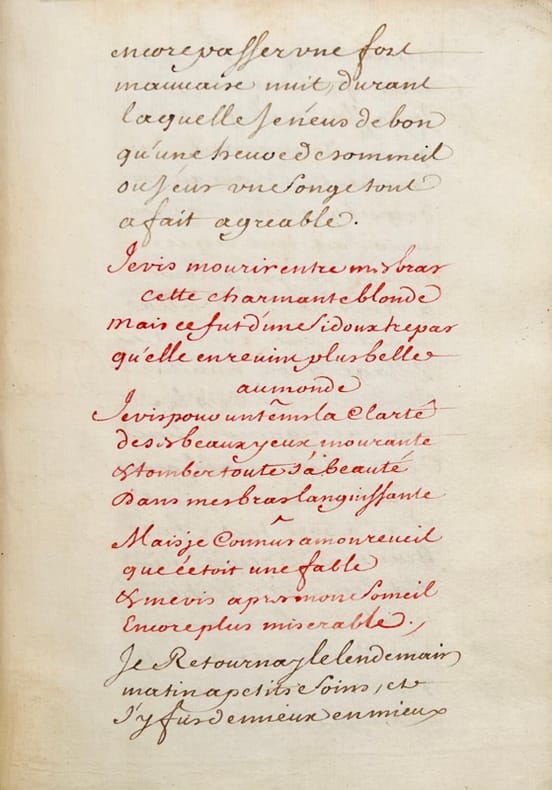 encore passer vne fort
mauuaise nuit, durant
laquelle Je n'eus de bon
qu'une heure de sommeil
ou J'eus vne songe tout
a fait agreable.
Je vis mourir entre mes bras
cette charmante blonde
mais ce fut d'une si doux trepas
qu'elle en reuim plus belle
au monde
Je vis pour un têms la Clarté
de ses beaux yeux mourante
& tomber toute sa beauté
Dans mes bras languissante
Mais je Connus a mon reueil
que c'étoit une fable
& me vis apres mon Someil
Encore plus miserable.,
Je Retournay le lendemain
matin a petits Soins, et
J'y fus de mieux en mieux